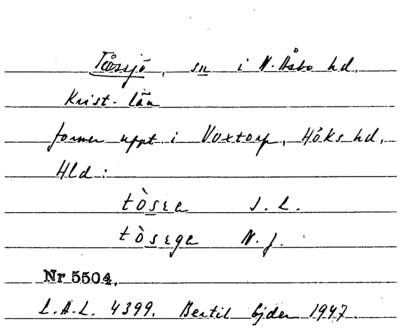 Tåssjö, sn i N. Åsbo hd.
Krist. län
former uppt i Voxtorp, Höks hd,
Hld:
tò̀sɛɛ J. L.
tò̀sɛgɛ N. J.
Nr 5504.
L.A.L. 4399. Bertil Ejder 1947.